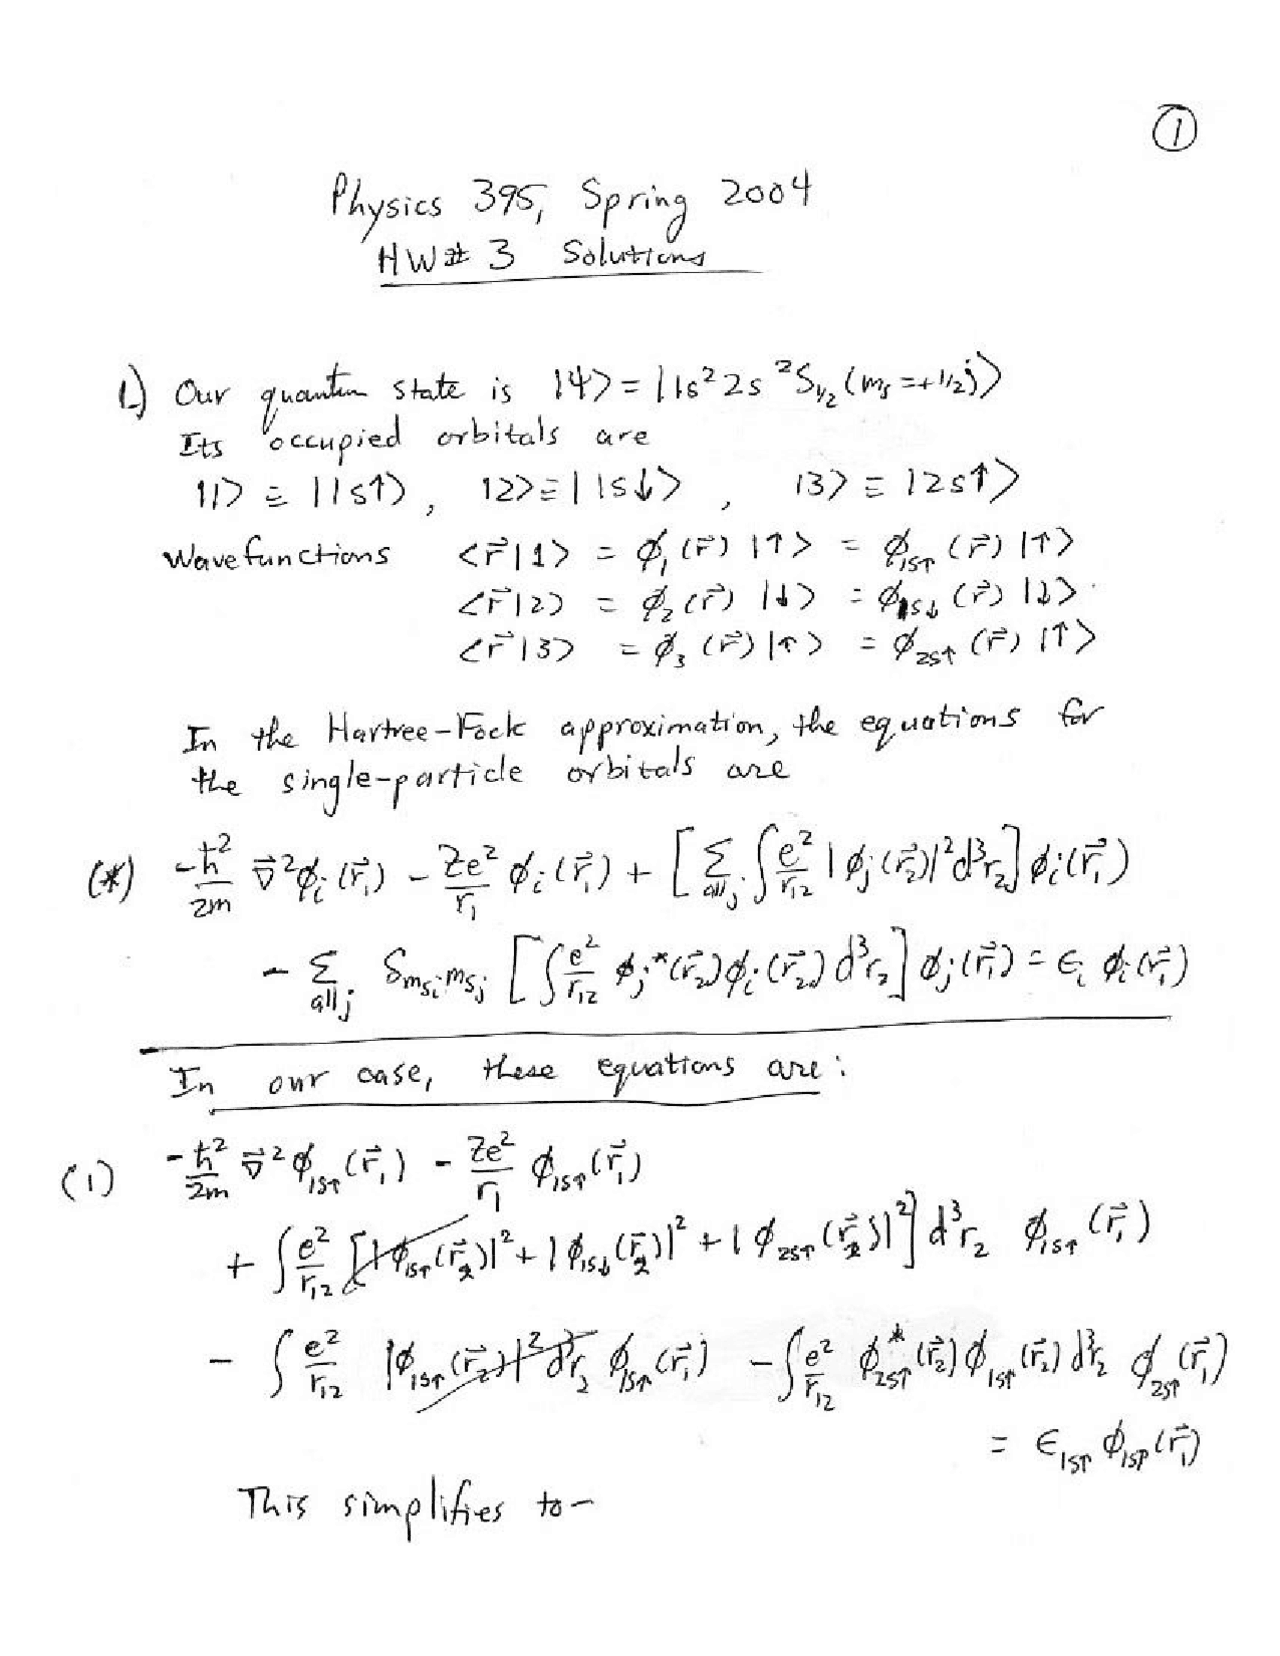 ①
Physics 395, Spring 2004
HW# 3 Solutions
1.) Our quantum state is |ψ> = |1s² 2s ²S₁/₂ (mₛ=+1/2)>
Its occupied orbitals are
|1> ≡ |1s↑>, |2> ≡ |1s↓>, |3> ≡ |2s↑>
Wavefunctions <r⃗|1> = ϕ₁(r⃗) |↑> = ϕ_{1s↑}(r⃗) |↑>
<r⃗|2> = ϕ₂(r⃗) |↓> = ϕ_{1s↓}(r⃗) |↓>
<r⃗|3> = ϕ₃(r⃗) |↑> = ϕ_{2s↑}(r⃗) |↑>
In the Hartree-Fock approximation, the equations for
the single-particle orbitals are
(*) -ħ²/2m ∇⃗²ϕᵢ(r⃗₁) - Ze²/r₁ ϕᵢ(r⃗₁) + [Σ_{all j} ∫ e²/r₁₂ |ϕⱼ(r⃗₂)|² d³r₂] ϕᵢ(r⃗₁)
- Σ_{all j} δ_{m_{si} m_{sj}} [∫ e²/r₁₂ ϕⱼ*(r⃗₂) ϕᵢ(r⃗₂) d³r₂] ϕⱼ(r⃗₁) = ϵᵢ ϕᵢ(r⃗₁)
In our case, these equations are:
(1) -ħ²/2m ∇⃗²ϕ_{1s↑}(r⃗₁) - Ze²/r₁ ϕ_{1s↑}(r⃗₁)
+ ∫ e²/r₁₂ [|ϕ_{1s↑}(r⃗₂)|² + |ϕ_{1s↓}(r⃗₂)|² + |ϕ_{2s↑}(r⃗₂)|²] d³r₂ ϕ_{1s↑}(r⃗₁)
- ∫ e²/r₁₂ |ϕ_{1s↑}(r⃗₂)|² d³r₂ ϕ_{1s↑}(r⃗₁) - ∫ e²/r₁₂ ϕ*_{2s↑}(r⃗₂) ϕ_{1s↑}(r⃗₂) d³r₂ ϕ_{2s↑}(r⃗₁)
= ϵ_{1s↑} ϕ_{1s↑}(r⃗₁)
This simplifies to-